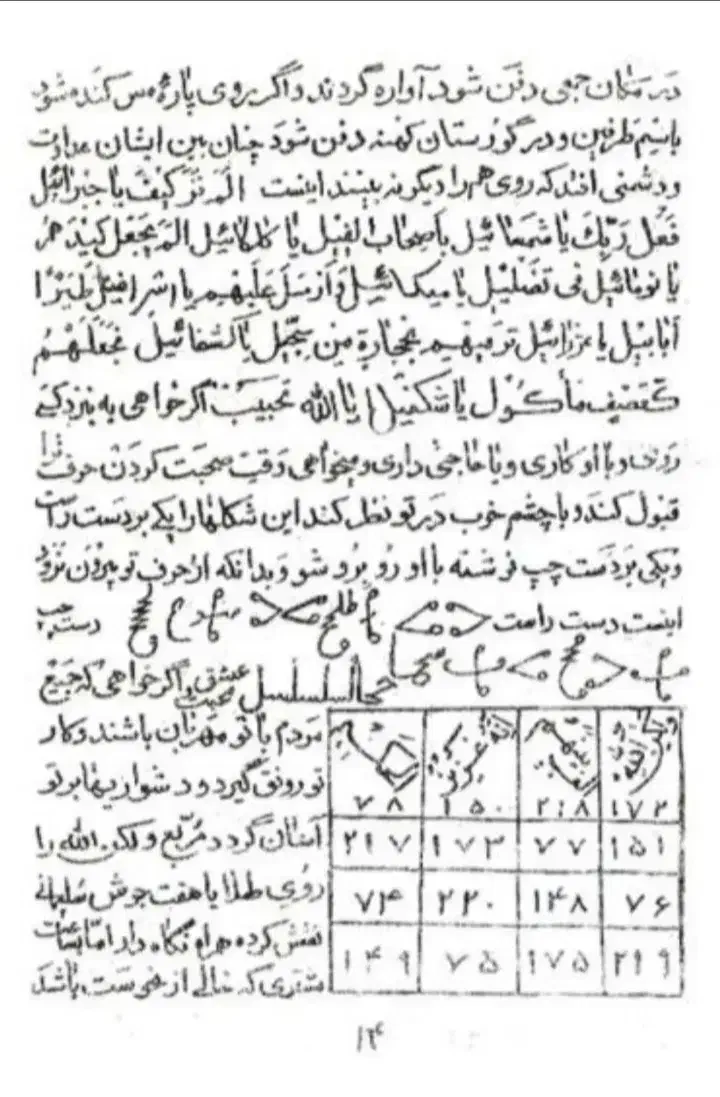 در مکان جمعی دفن شود آواره گردند و اگر بروی پارهٔ مس کنده شود
باسم طرفین و در گورستان کهنه دفن شود چنان بین ایشان عداوت
و دشمنی افتد که روی هم را دیگر نه بینند اینست الم تر کیف یا جبرائیل
فعل ربك یا شمعائیل باصحاب الفیل یا کلکائیل الم یجعل کیدهم
یا نومائیل فی تضلیل یا میکائیل و ارسل علیهم یا اسرافیل طیرا
ابابیل یا عزرائیل ترمیهم بحجارة من سجیل یا کسفائیل فجعلهم
کعصف مأکول یا شکمیل یا الله تحبیب اگر خواهی به نزد کسی
روی و با او کاری و یا حاجتی داری و میخواهی وقت صحبت کردن حرفت را
قبول کند و با چشم خوب در تو نظر کند این شکلها را یکی بر دست راست
و یکی بر دست چپ نوشته با او روبرو شو و بدانکه از حرف تو بیرون نرود
اینست دست راست دست چپ
عشق محبت اگر خواهی که جمیع
مردم با تو مهربان باشند و کار
تو رونق گیرد و دشواریها بر تو
آسان گردد مربع ولکن الله را
روی طلا یا هفت جوش سلیمانی
نقش کرده همراه نگاه دار اما بساعت
مشتری که خالی از نحوست باشد
ولکن الله الف بینهم انه عزیز حکیم
۱۷۲ ۲۱۸ ۱۵۰ ۷۸
۱۵۱ ۷۷ ۱۷۳ ۲۱۷
۷۶ ۱۴۸ ۲۲۰ ۷۴
۲۱۹ ۱۷۵ ۷۵ ۱۴۹
۱۴